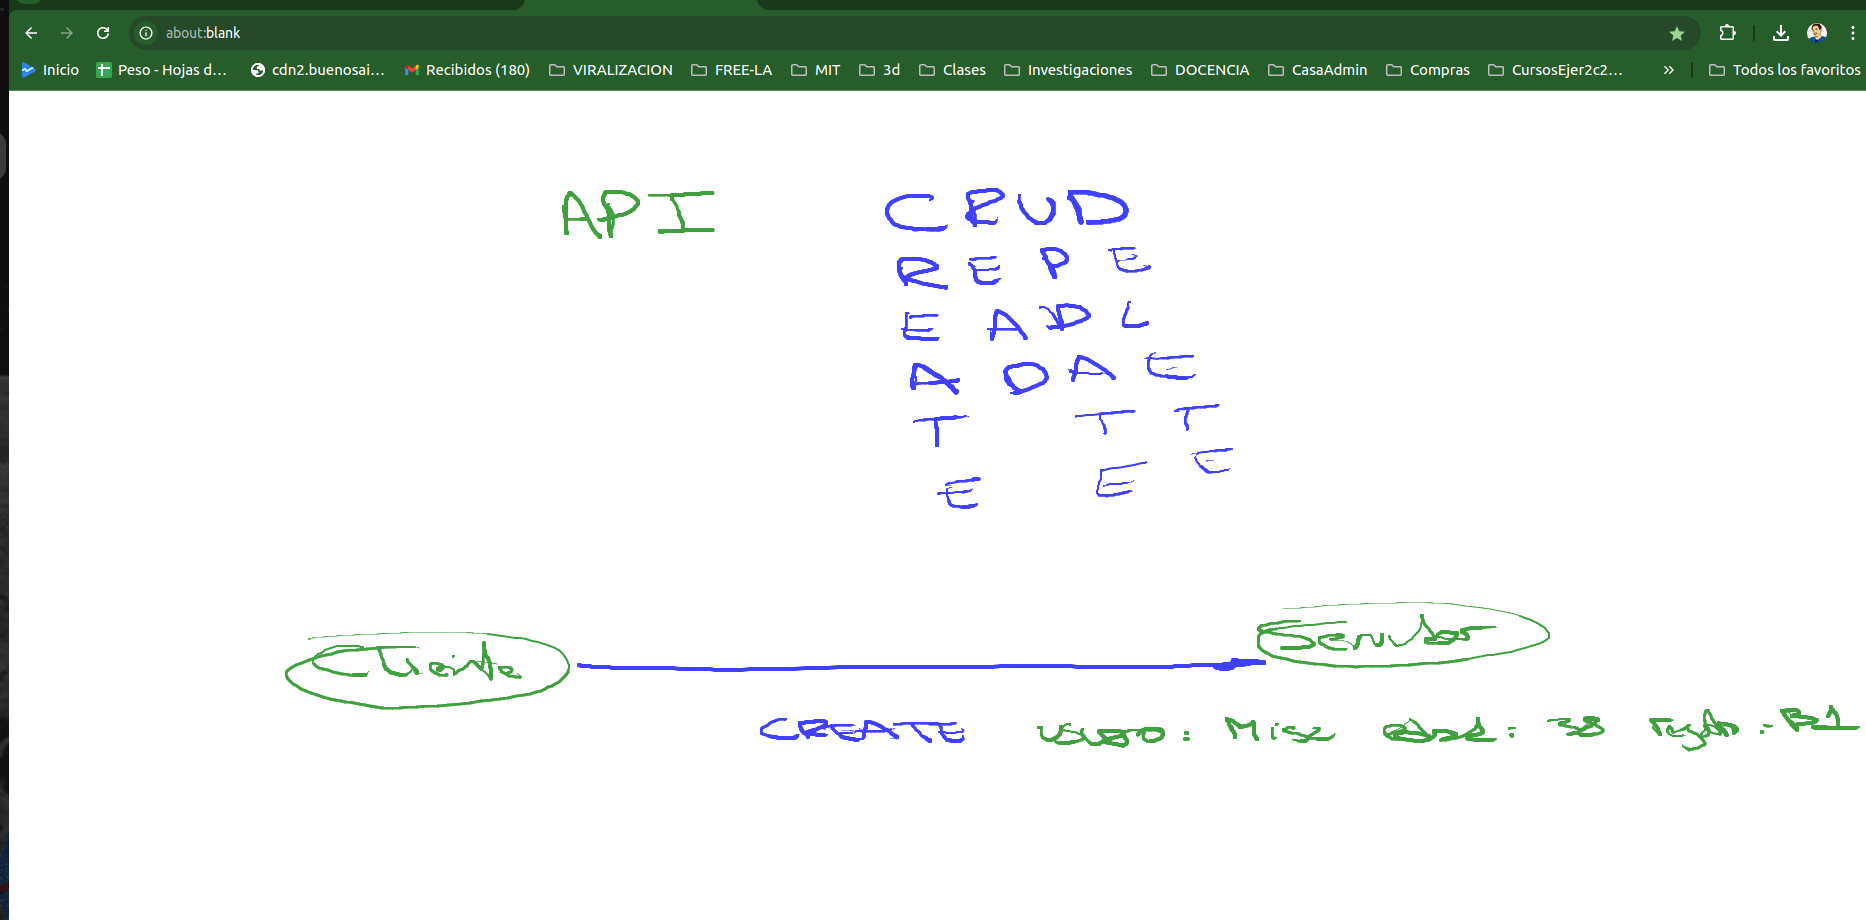 about:blank
Inicio Peso - Hojas d... cdn2.buenosai... Recibidos (180) VIRALIZACION FREE-LA MIT 3d Clases Investigaciones DOCENCIA CasaAdmin Compras CursosEjer2c2... » Todos los favoritos
API CRUD
R E P E
E A D L
A D A E
T T T
E E E
Cliente Servidor
CREATE : = 38 = B1